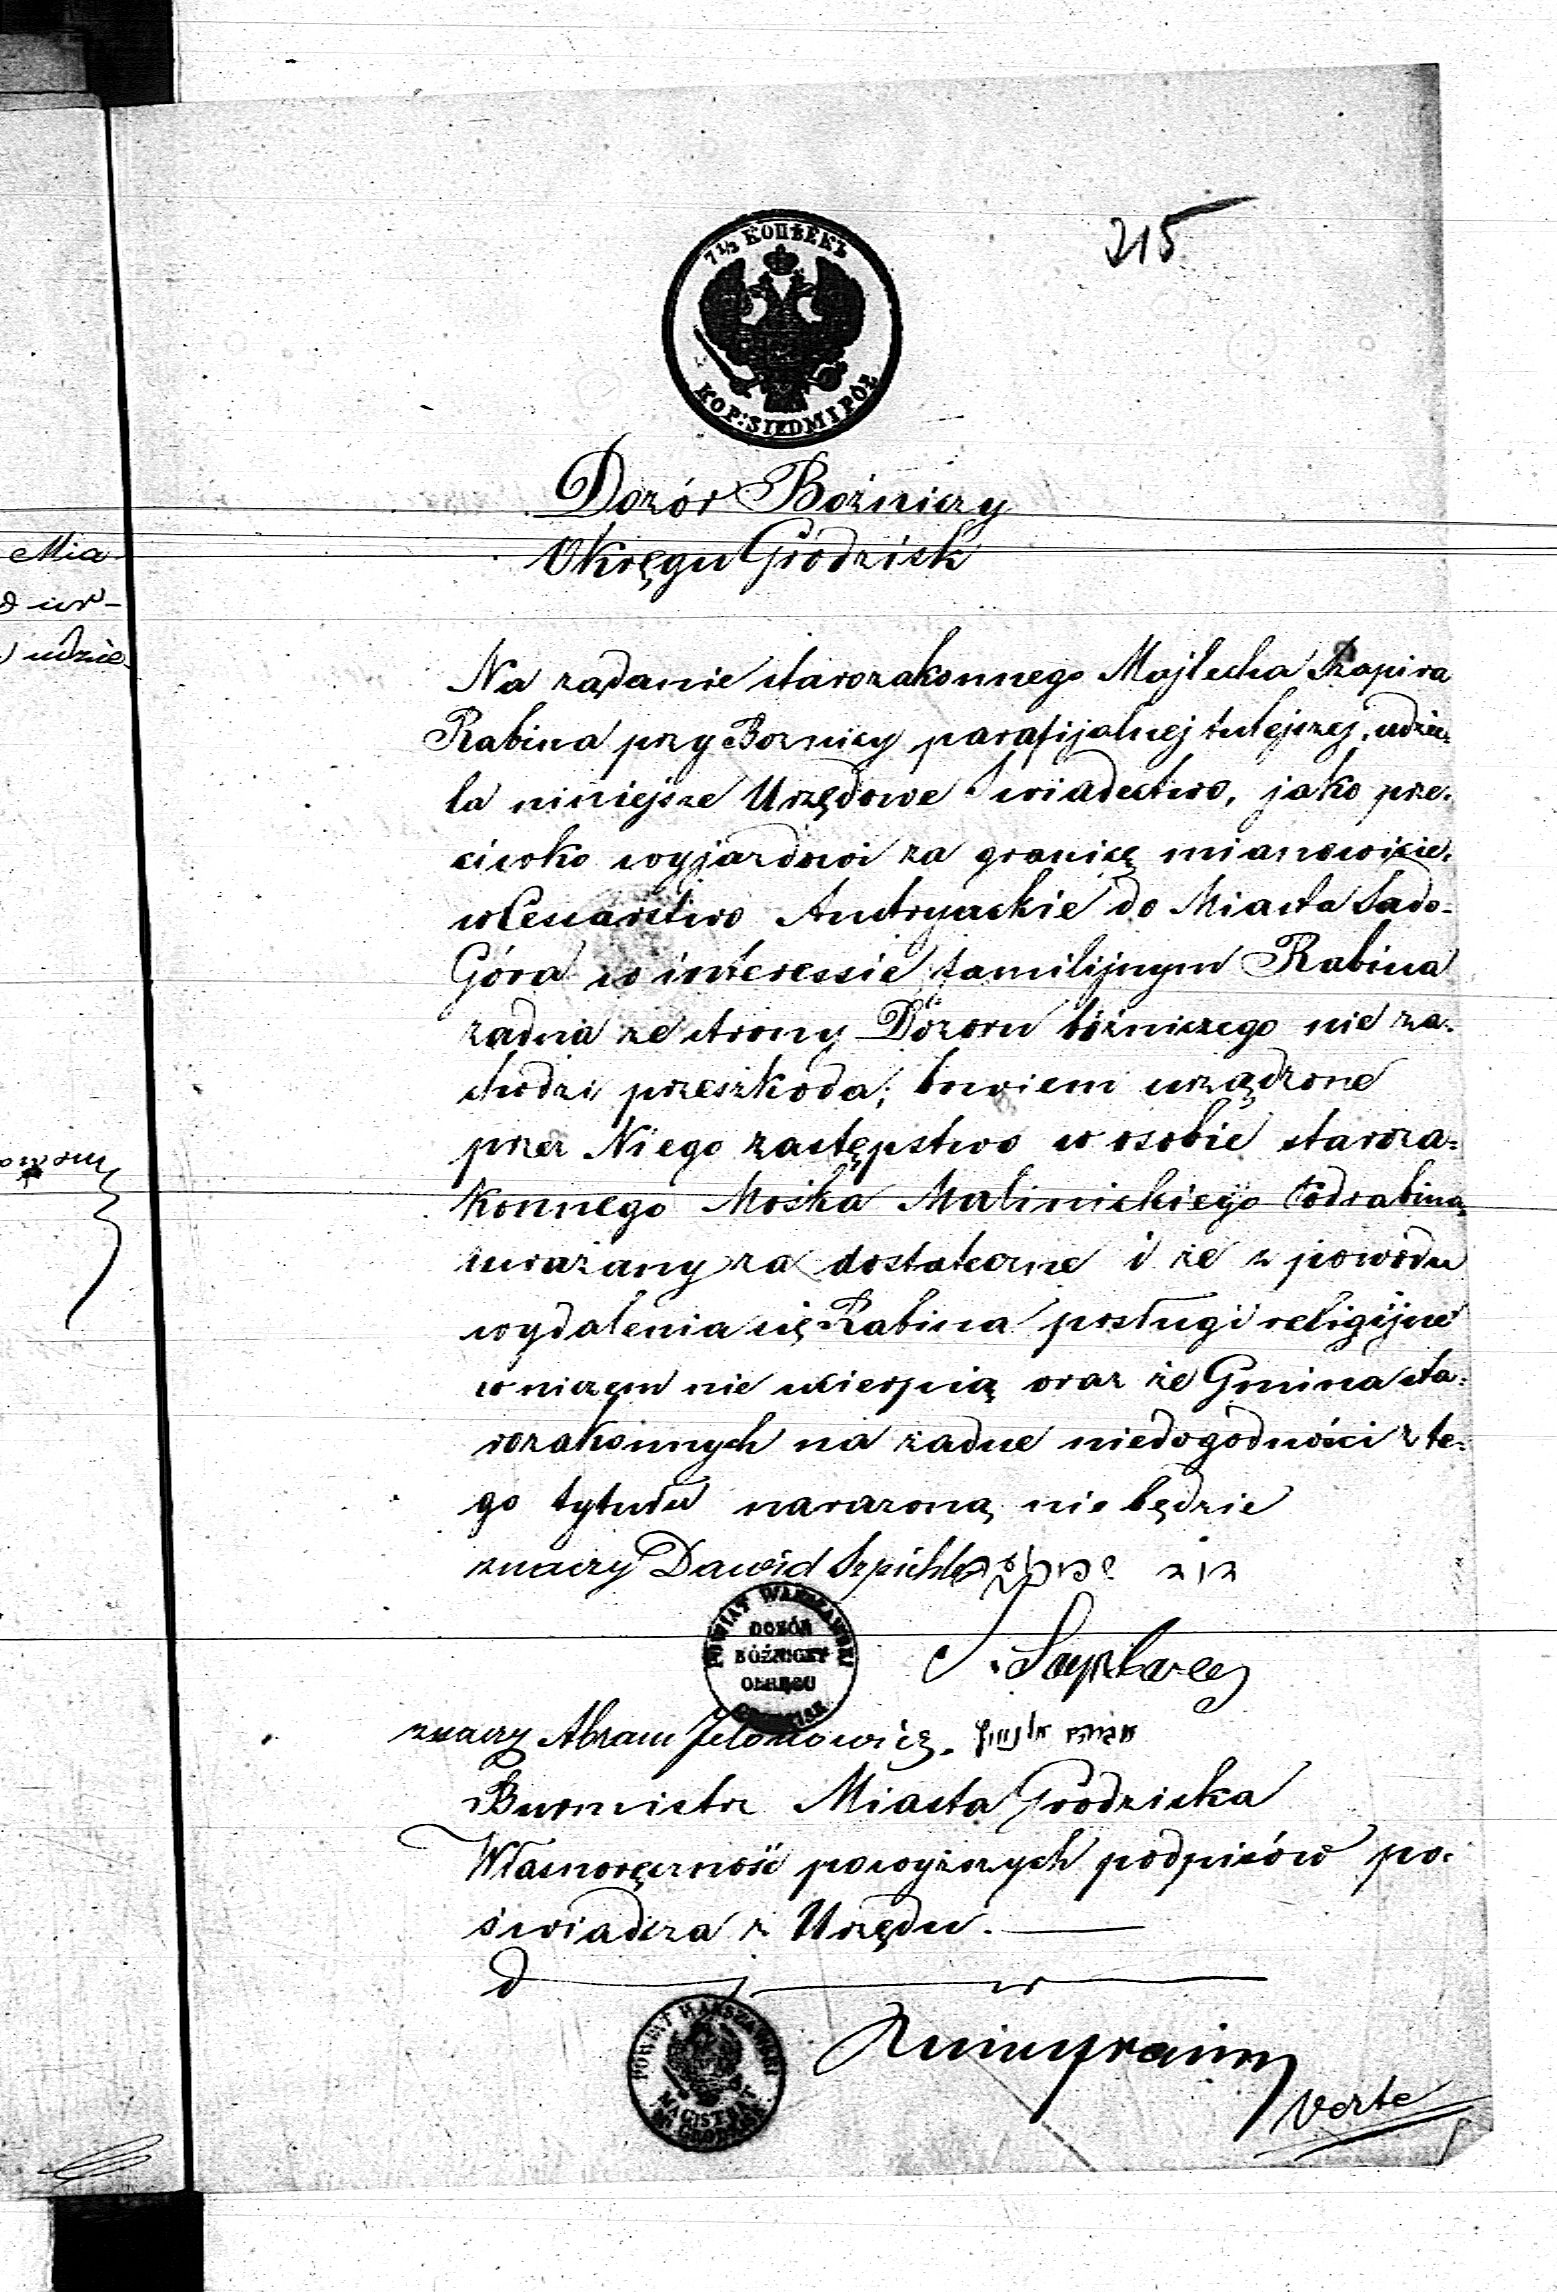 215
7 1/2 КОПѢЕКЪ
KOP: SIEDM I PÓŁ
Dozór Bożniczy
Okręgu Grodzisk
Mia
udzie
Na żądanie starozakonnego Majlecha Szapira
Rabina przy Boznicy parafijalnej tutejszej, udzie-
la niniejsze Urzędowe Swiadectwo, jako prze-
ciwko wyjazdowi za granicę mianowicie,
w Cesarstwo Austryackie do Miasta Sado-
Góra w interessie familijnym Rabina
żadna ze strony Dozoru bóżniczego nie za-
chodzi przeszkoda; bowiem urządzone
przez Niego zastępstwo w osobie staroza-
konnego Mośka Malinickiego Podrabina,
uważamy za dostateczne i że z powodu
wydalenia się Rabina posługi religijne
w niczem nie ucierpią oraz że Gmina sta-
rozakonnych na żadne niedogodności z te-
go tytułu narażoną nie będzie
znaczy Dawid דוד
POWIAT WARSZAWSKI
DOZÓR
BÓŻNICZY
OKRĘGU
GRODZISK
znaczy Abram אברהם
Burmistrz Miasta Grodziska
Własnoręczność powyższych podpisów po-
świadcza z Urzędu.
POWIAT WARSZAWSKI
MAGISTRAT
Verte